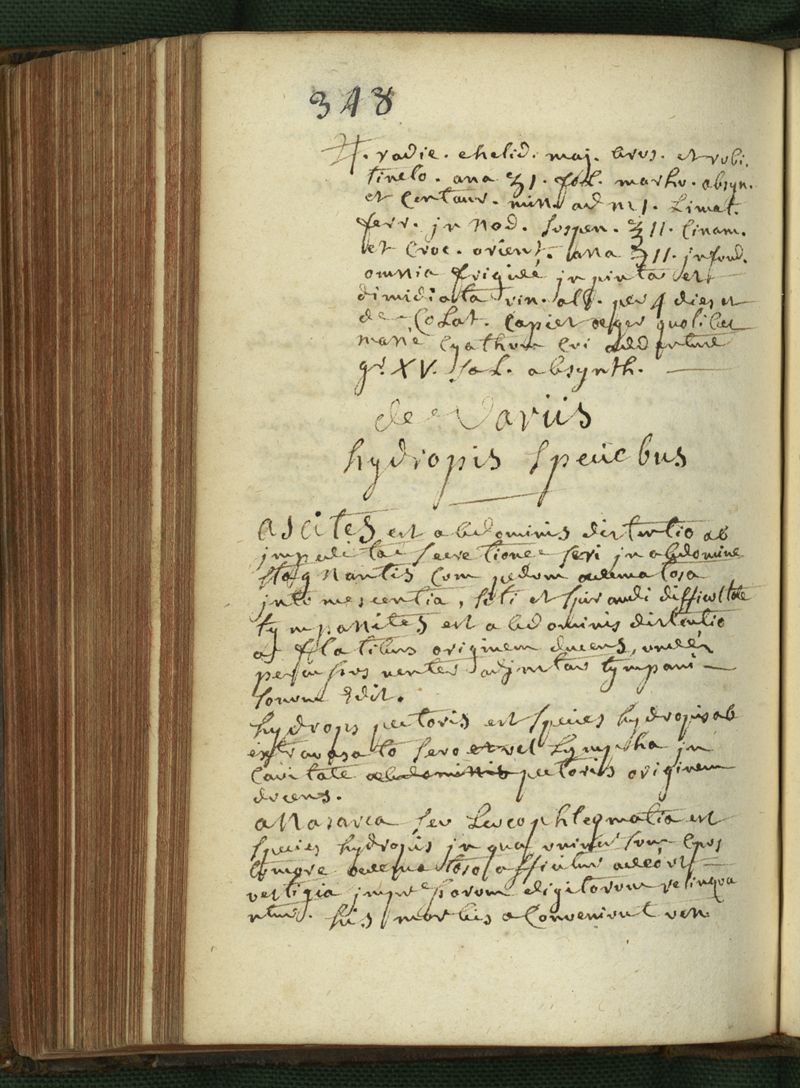 348
♃. radic. chelid. maj. brus. et rubi.
tinclo. ana ℥1. fol. marhv. absyn.
et Centaur. min. ad m1. Limat.
ferr. jn nod. suspen. ℥11. Cinam.
et Croc. orient. ana ʒ11. jnfund.
omnia frigide jn pinta et
dimidiata vin. alb. per 4 dies et
de Colat. Capiet aeger quolibet
mane Cyathum Cui
gr XV. Sal. absynth.
de Variis
hydropis speciebus
ascites est abdominis distentio ab
jmpedita secretione seri jn abdomine
stagnantis Cum pedum oedematosa
jntumescentia, siti et spirandi difficultate
tympanites est abdominis distentio
a flatibus originem ducens, unde
percussus venter adjnstar tympani
sonum edit.
hydrops pectoris est species hydropis ab
extravasato sero et vel Lympha jn
Cavitate abdominis pectoris originem
ducens.
anasarca seu Leucophlegmatia est
species hydropis jn qua universum Cpus
tumore oedematoso afficitur adeo ut
vestigia jmpressorum digitorum relinqua
ntur. his morbis a Conveniunt ven